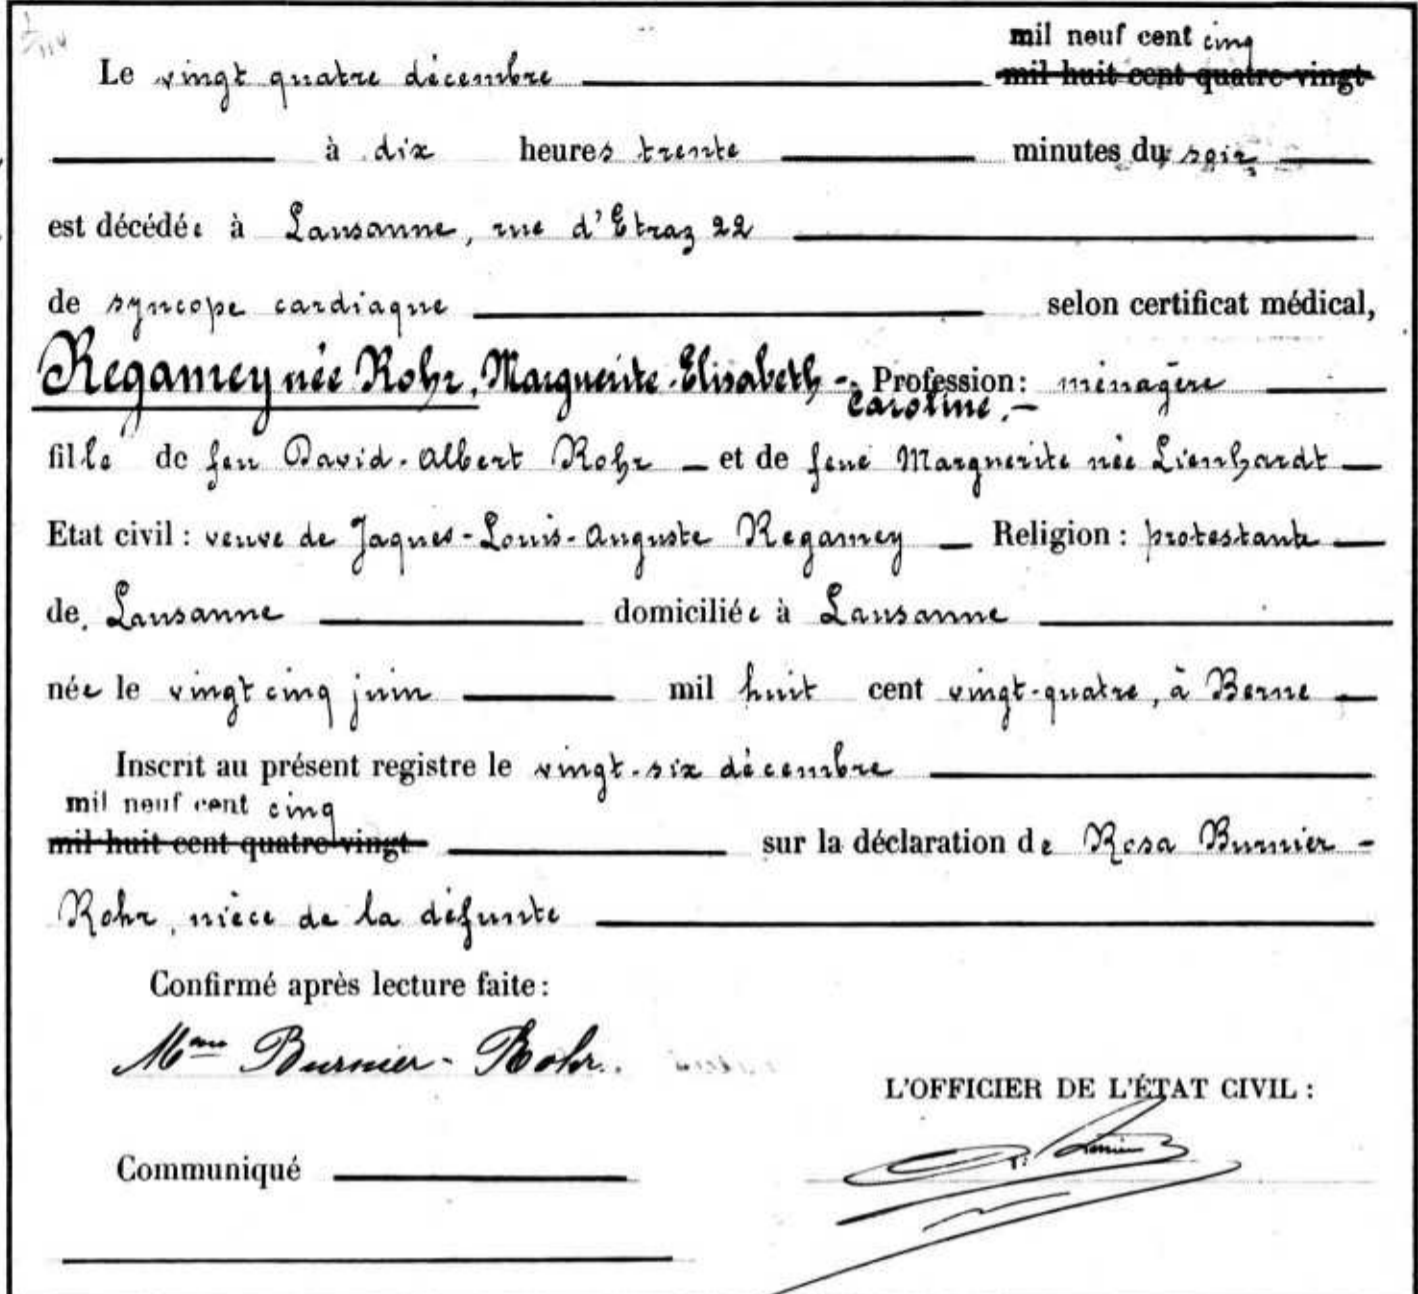 mil neuf cent cinq
Le vingt quatre décembre mil huit cent quatre-vingt
à dix heures trente minutes du soir
est décédée à Lausanne, rue d'Etraz 22
de syncope cardiaque selon certificat médical,
Regamey née Rohr, Marguerite-Elisabeth - Profession: ménagère
Caroline.-
fille de feu David-Albert Rohr et de feue Marguerite née Lienhardt
Etat civil : veuve de Jaques-Louis-Auguste Regamey Religion : protestante
de Lausanne domiciliée à Lausanne
née le vingt cinq juin mil huit cent vingt-quatre, à Berne
Inscrit au présent registre le vingt-six décembre
mil neuf cent cinq
mil huit cent quatre-vingt sur la déclaration de Rosa Burnier-
Rohr, nièce de la défunte
Confirmé après lecture faite :
Mme Burnier-Rohr.
L'OFFICIER DE L'ÉTAT CIVIL :
Communiqué